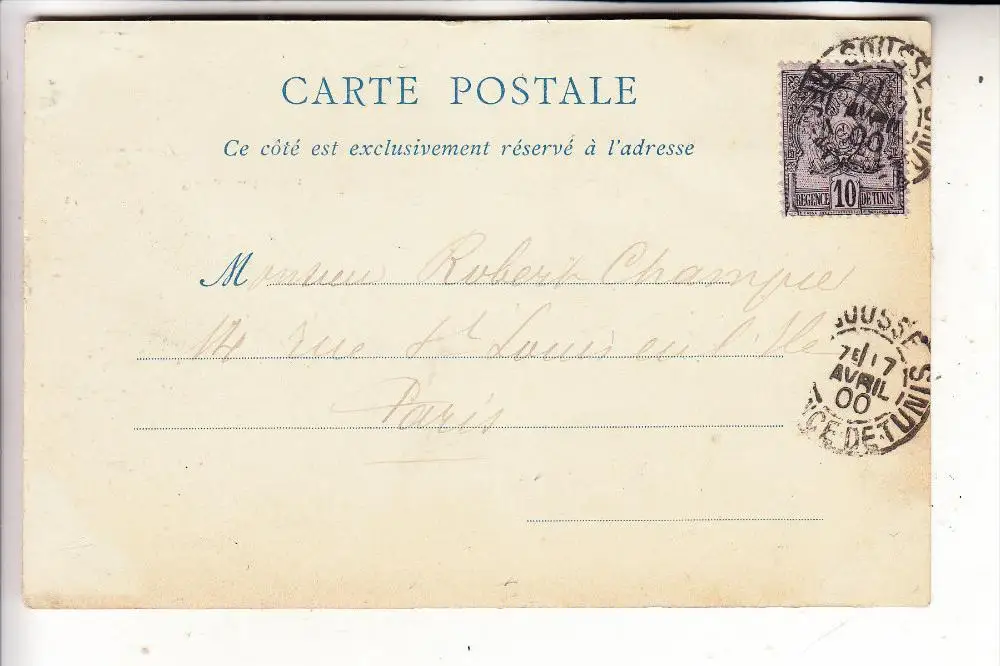 CARTE POSTALE
Ce côté est exclusivement réservé à l'adresse
SOUSSE
AVRIL
00
REGENCE 10 DE TUNIS
Monsieur Robert
14 rue St Louis en l'Ile
Paris
SOUSSE
7E/17
AVRIL
00
CE DE TUNIS